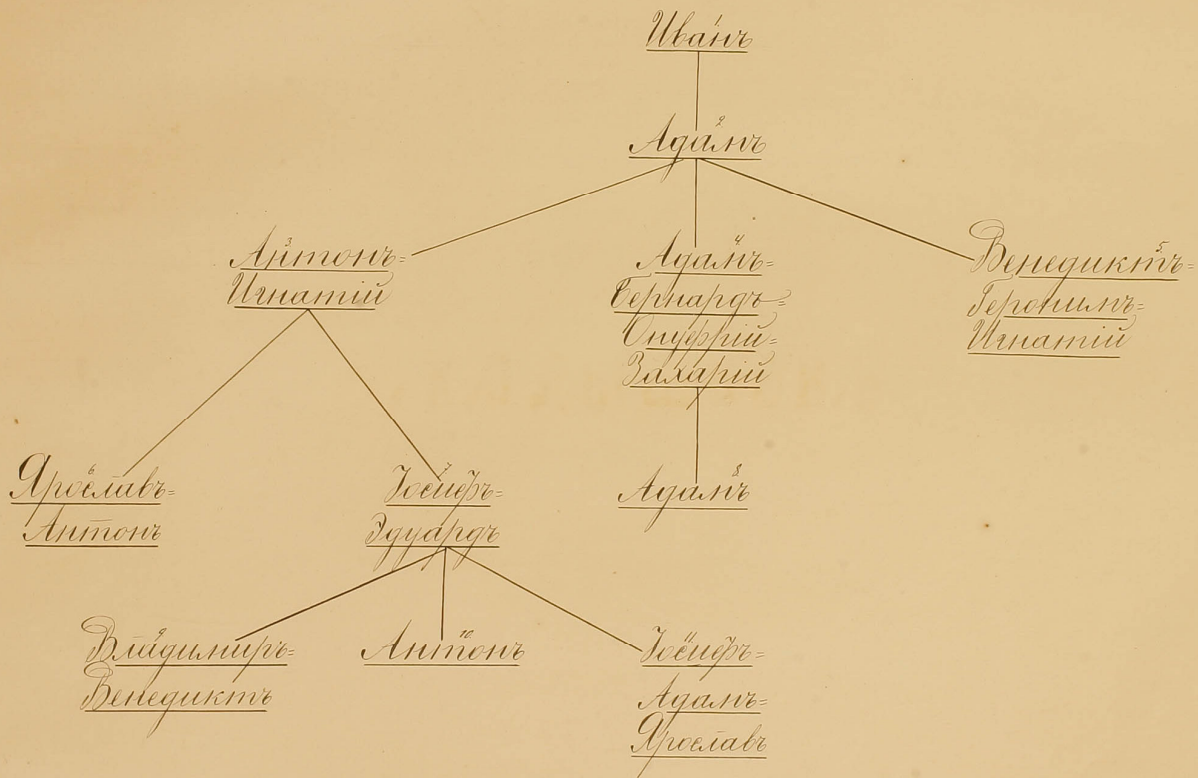 1
Иванъ
2
Адамъ
3
Антонъ=
Игнатій
4
Адамъ=
Бернардъ=
Онуфрій=
Захарій
5
Венедиктъ=
Геронимъ=
Игнатій
6
Ярославъ=
Антонъ
7
Іосифъ=
Эдуардъ
8
Адамъ
9
Владимиръ=
Венедиктъ
10
Антонъ
11
Іосифъ=
Адамъ=
Ярославъ